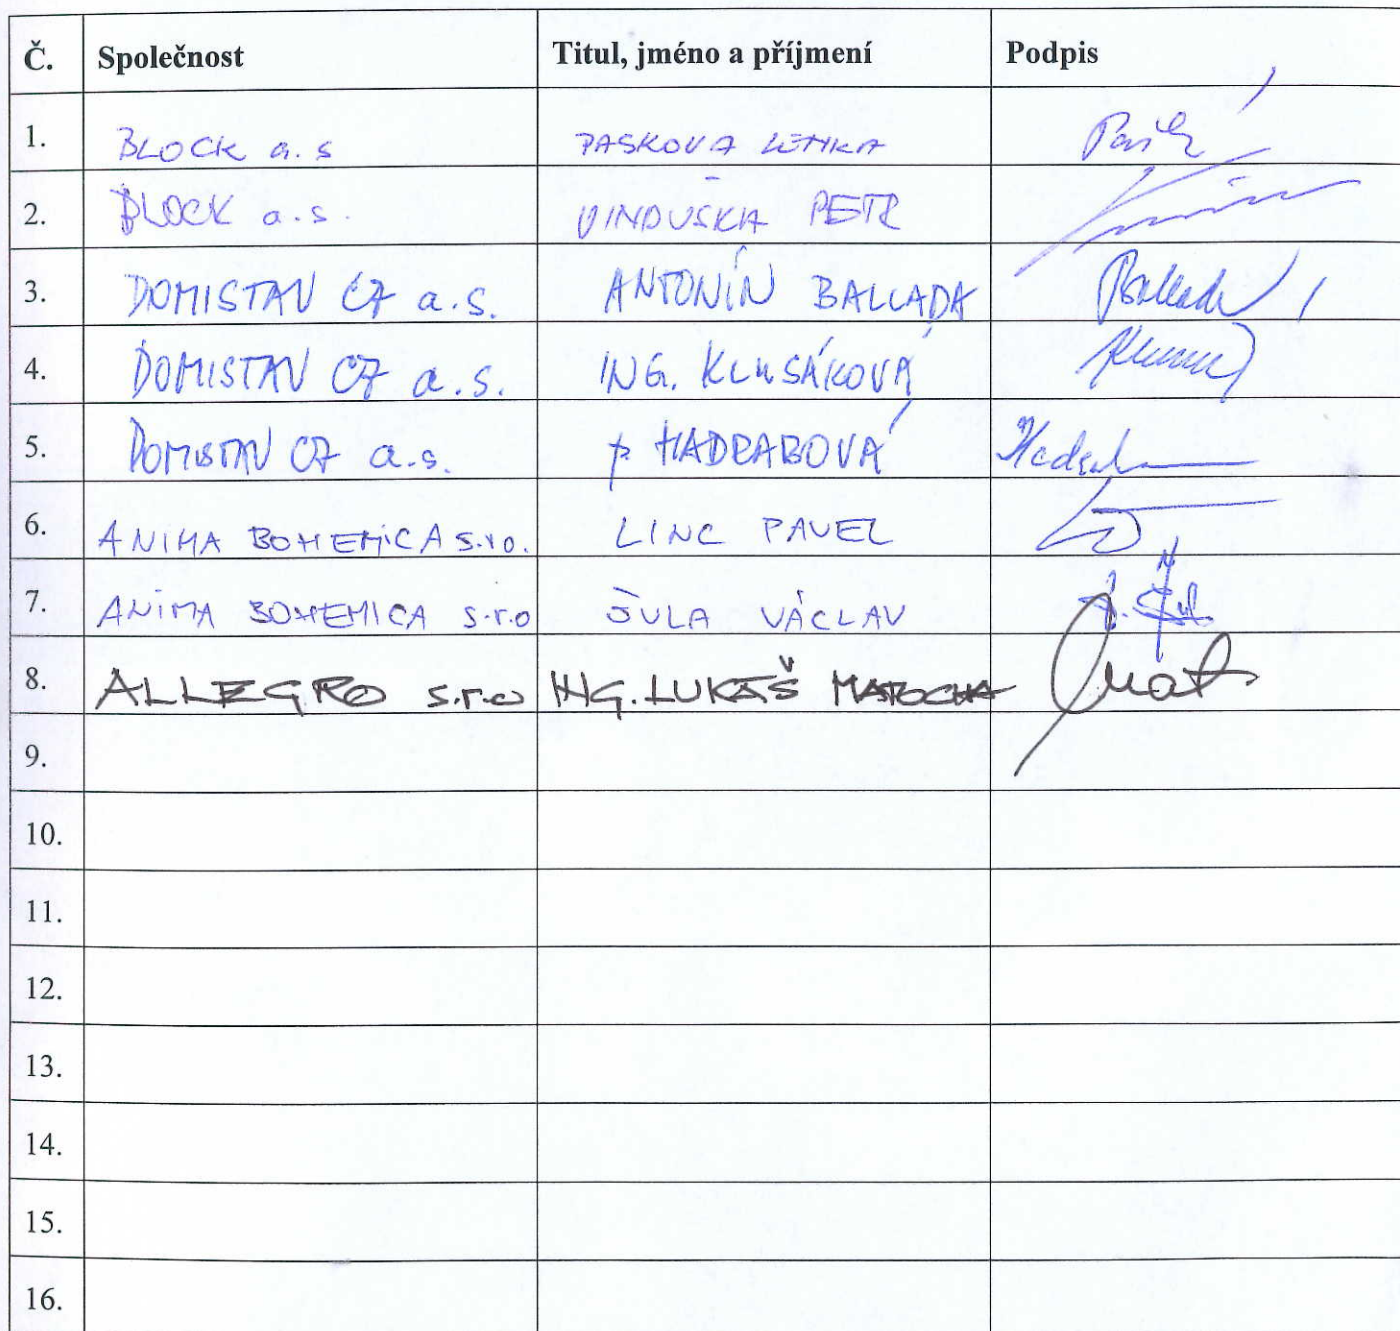 Č. Společnost Titul, jméno a příjmení Podpis
1. BLOCK a.s PASKOVA LENKA
2. BLOCK a.s. VINDUŠKA PETR
3. DOMISTAV CZ a.s. ANTONÍN BALLADA Ballada
4. DOMISTAV CZ a.s. ING. KLUSÁKOVÁ
5. DOMISTAV CZ a.s. p HADRABOVÁ
6. ANIMA BOHEMICA s.r.o. LINC PAVEL
7. ANIMA BOHEMICA s.r.o VÁCLAV
8. ALLEGRO s.r.o ING. LUKÁŠ MATOCHA
9.
10.
11.
12.
13.
14.
15.
16.